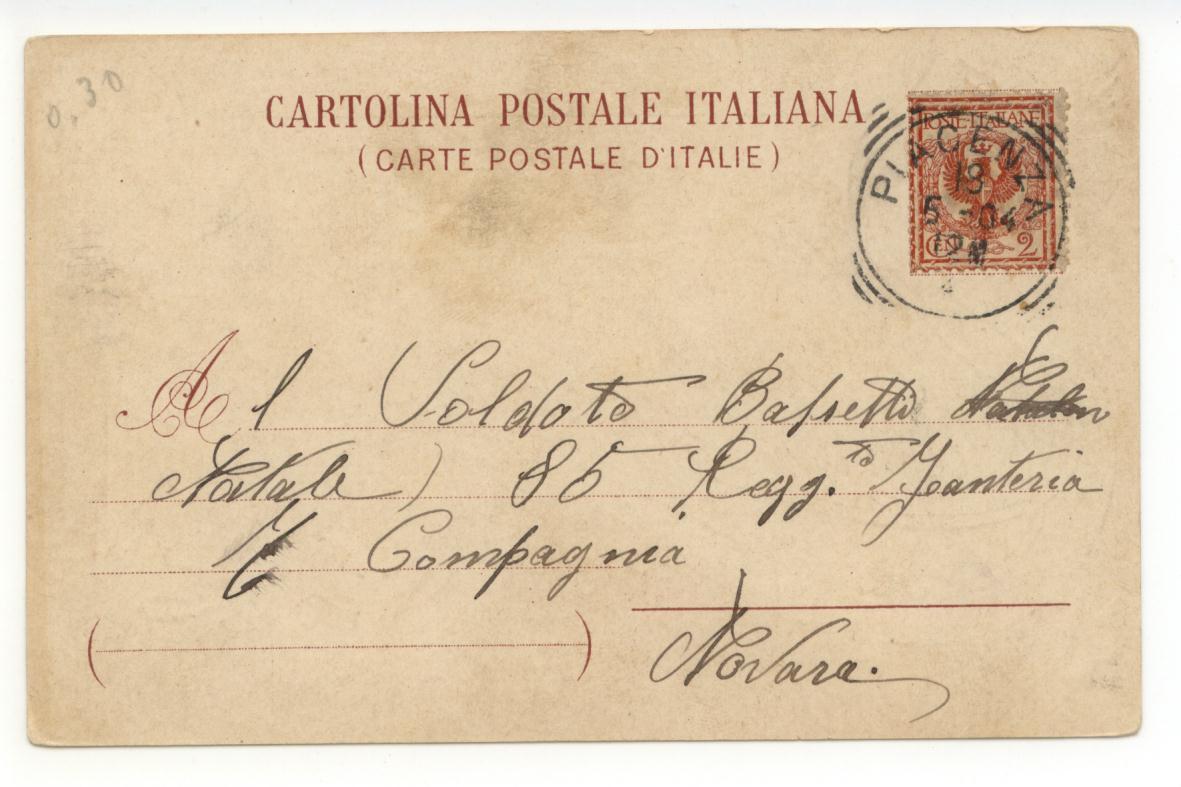 0.30
CARTOLINA POSTALE ITALIANA
(CARTE POSTALE D'ITALIE)
POSTE ITALIANE
PIACENZA
18
5-04
12M
CENT. 2
Al Soldato Bassetti
Natale) 85 Regg.to Fanteria
Compagnia
Novara.